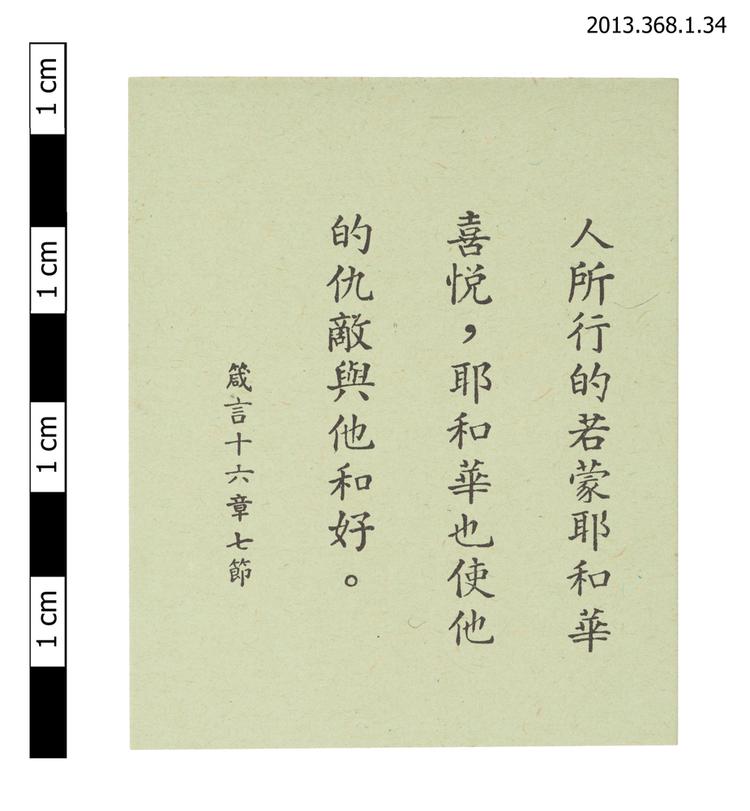 2013.368.1.34
1 cm
1 cm
1 cm
1 cm
人所行的若蒙耶和華
喜悅，耶和華也使他
的仇敵與他和好。
箴言十六章七節